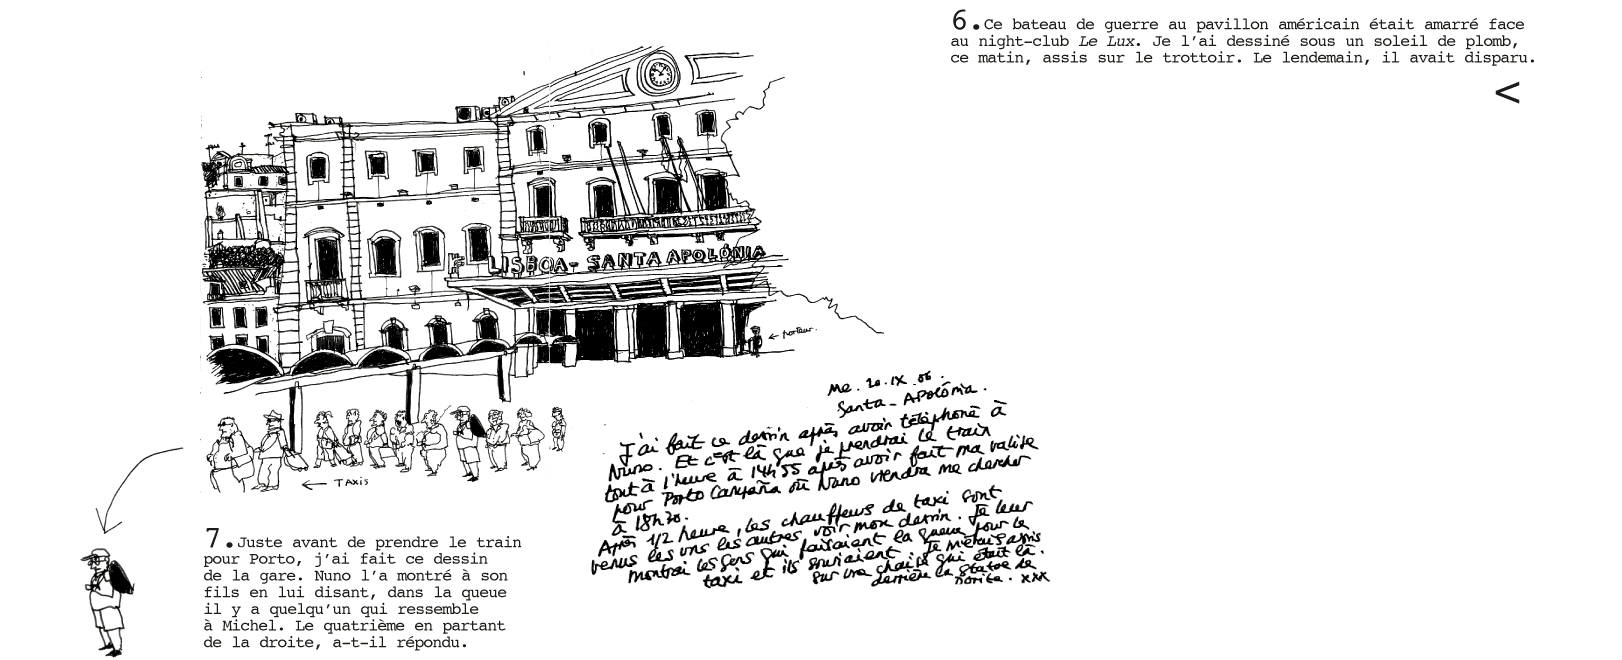 6. Ce bateau de guerre au pavillon américain était amarré face
au night-club Le Lux. Je l'ai dessiné sous un soleil de plomb,
ce matin, assis sur le trottoir. Le lendemain, il avait disparu.
<
LISBOA - SANTA APOLÓNIA
← porteur.
← TAXIS
Me. 20.IX.06.
Santa-Apolónia.
J'ai fait ce dessin après avoir téléphoné à
Nuno. Et c'est là que je prendrai le train
tout à l'heure à 14h55 après avoir fait ma valise
pour Porto Campaña où Nuno viendra me chercher
à 18h30.
Après 1/2 heure, les chauffeurs de taxi sont
venus les uns les autres voir mon dessin. Je leur
montrai les gens qui faisaient la queue pour le
taxi et ils souriaient. Je m'étais assis
sur une chaise qui était là.
derrière la statue de
norita. xxx
7. Juste avant de prendre le train
pour Porto, j'ai fait ce dessin
de la gare. Nuno l'a montré à son
fils en lui disant, dans la queue
il y a quelqu'un qui ressemble
à Michel. Le quatrième en partant
de la droite, a-t-il répondu.